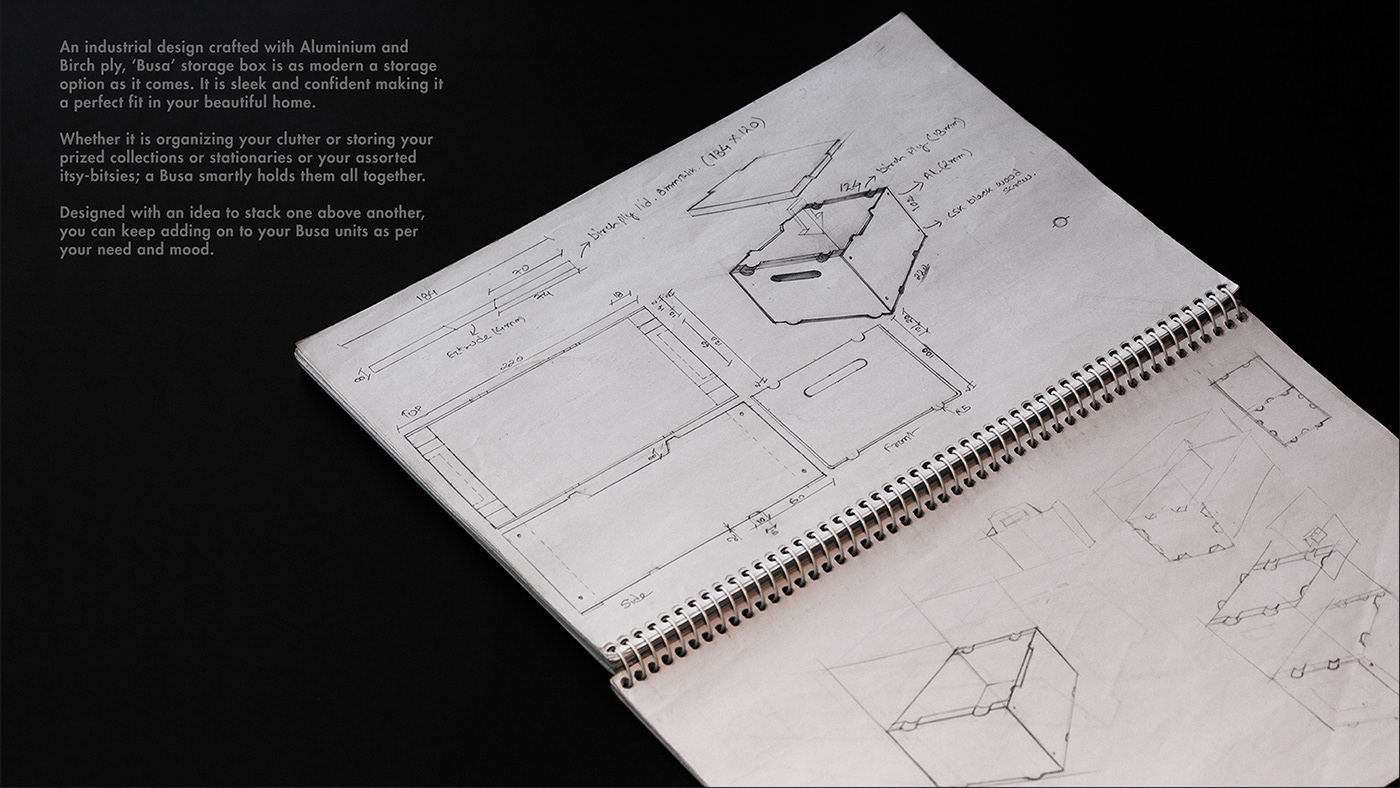 An industrial design crafted with Aluminium and
Birch ply, ‘Busa’ storage box is as modern a storage
option as it comes. It is sleek and confident making it
a perfect fit in your beautiful home.
Whether it is organizing your clutter or storing your
prized collections or stationaries or your assorted
itsy-bitsies; a Busa smartly holds them all together.
Designed with an idea to stack one above another,
you can keep adding on to your Busa units as per
your need and mood.
birch ply lid. 8mm (184 x 120)
124
birch ply (18mm)
Al. (2mm)
CSK black wood
screw.
220
184
70
74
Extrude (4mm)
8
220
18
TOP
100
R5
Front
60
Side